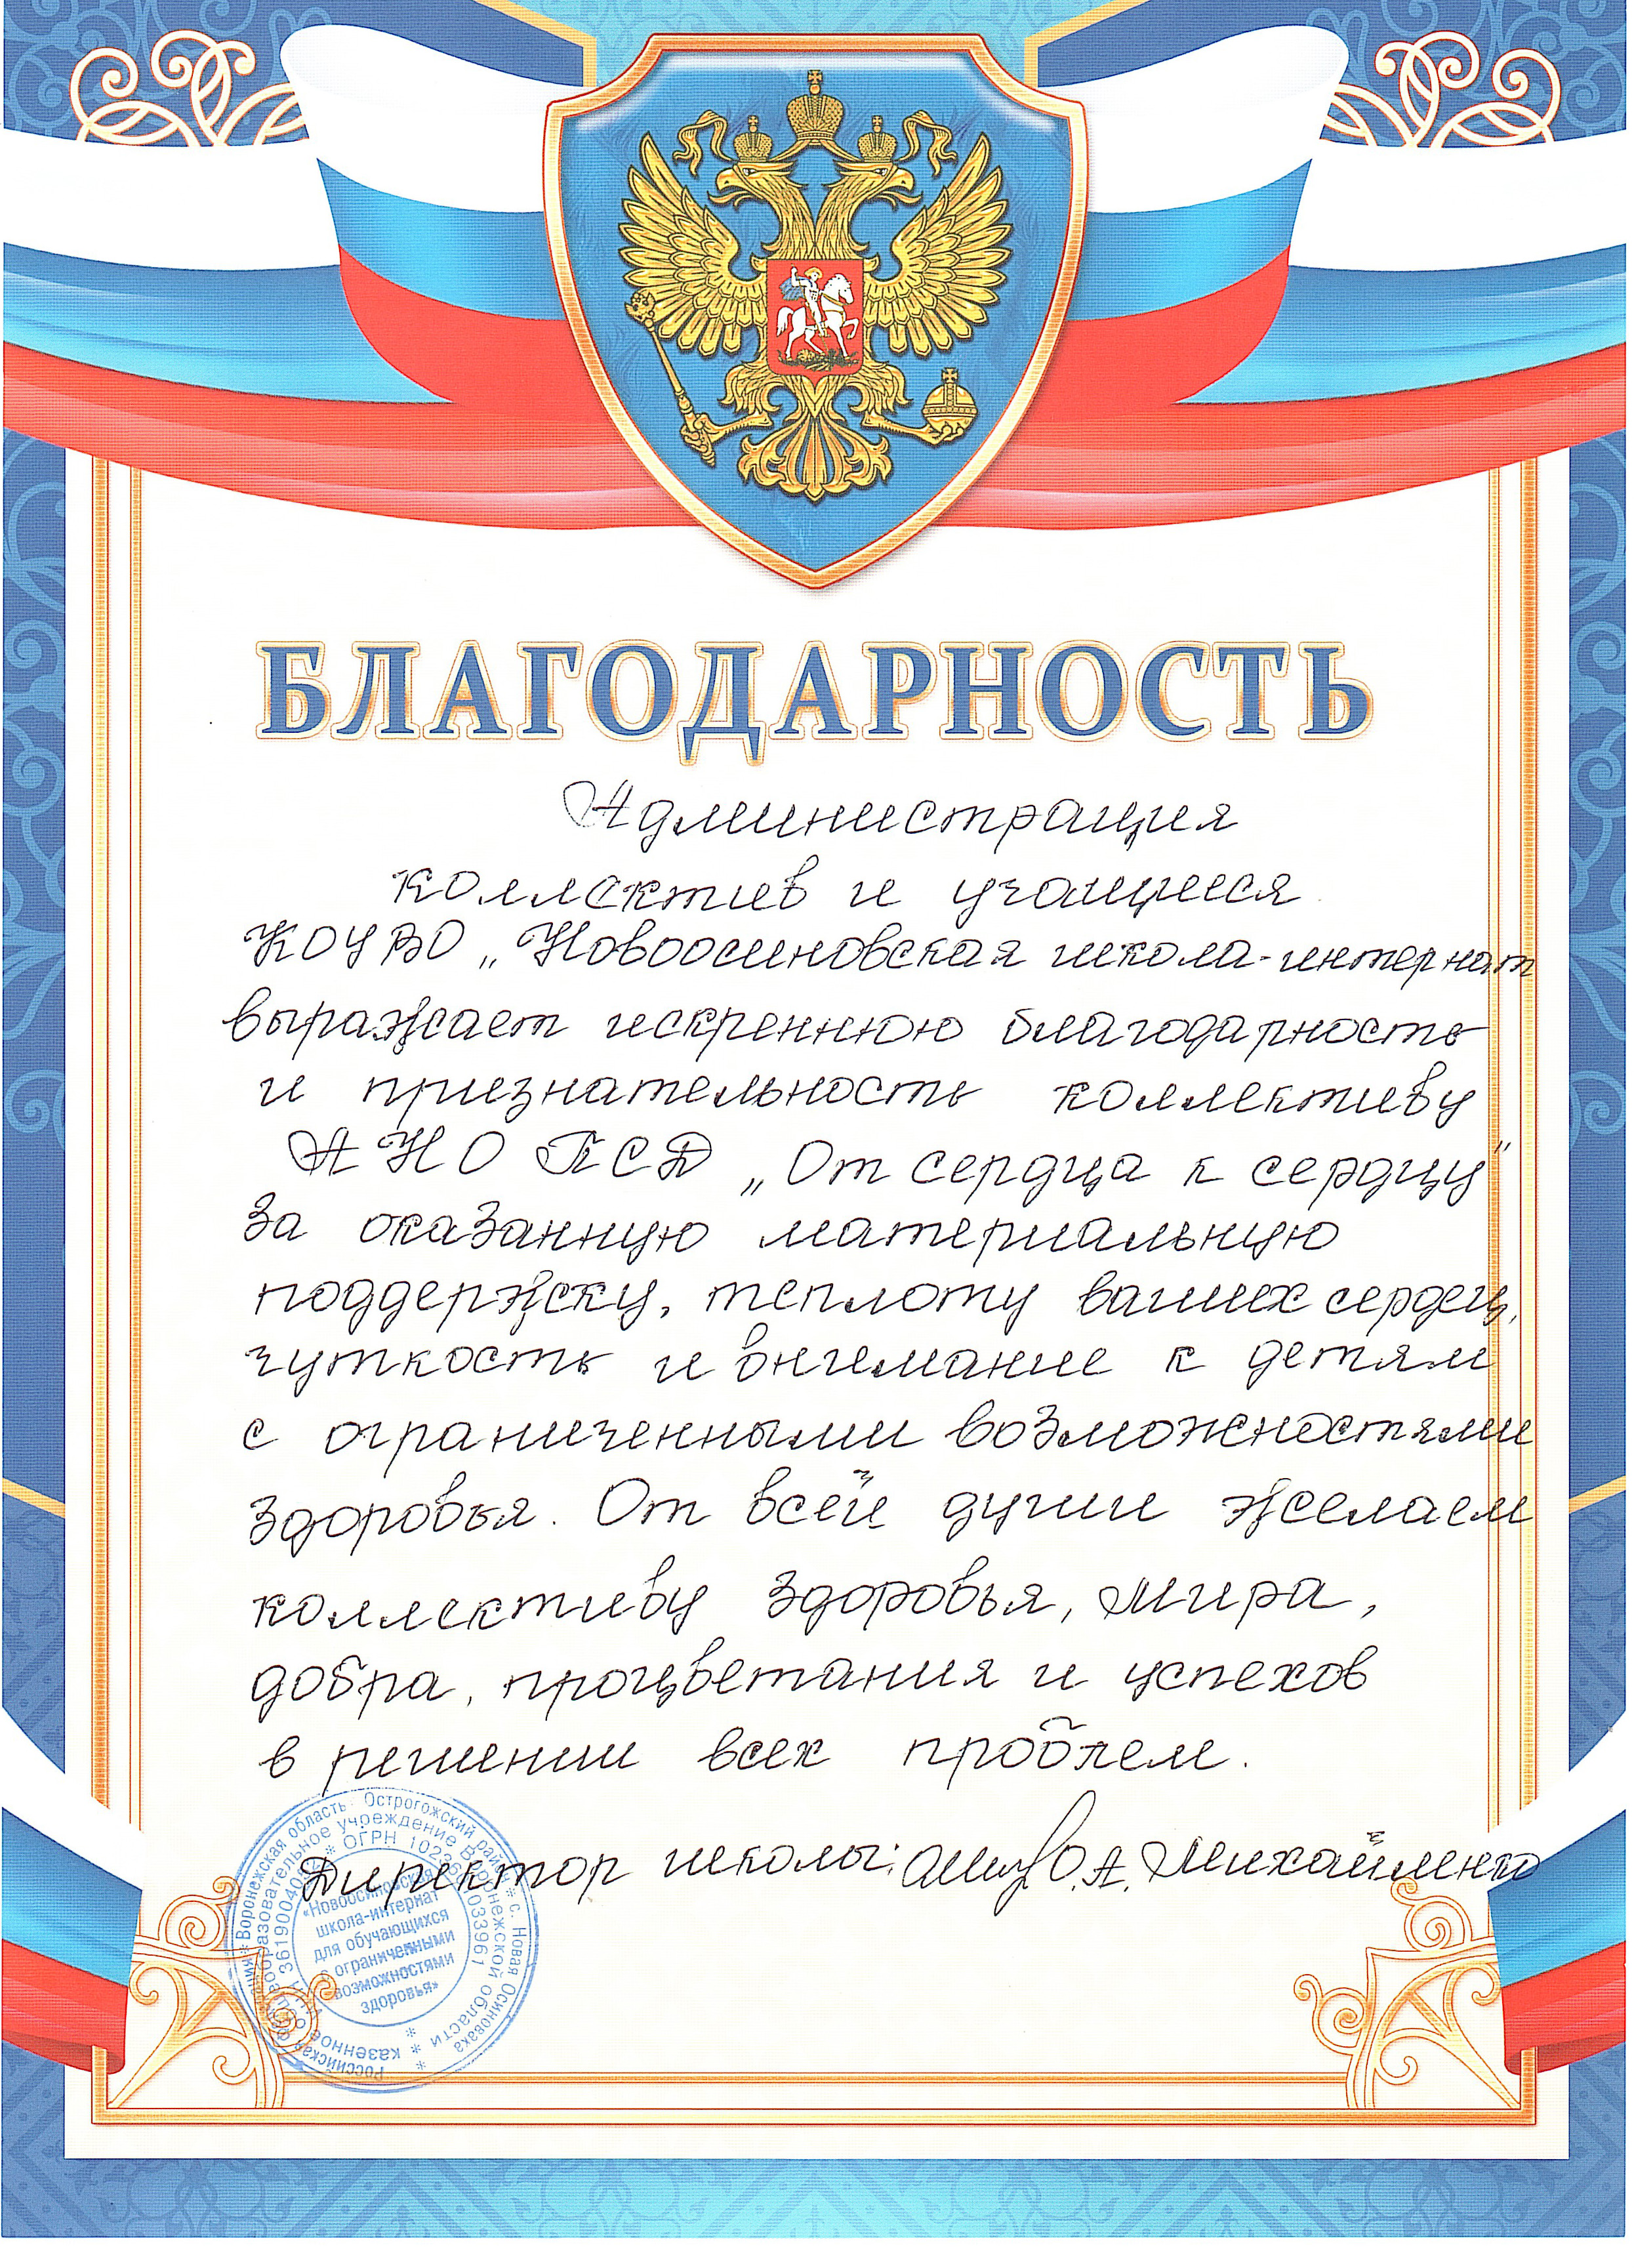 БЛАГОДАРНОСТЬ
Администрация
коллектив и учащиеся
КОУ ВО „Новоосиновская школа-интернат
выражает искреннюю благодарность
и признательность коллективу
АНО ПСД „От сердца к сердцу"
За оказанную материальную
поддержку, теплоту ваших сердец,
чуткость и внимание к детям
с ограниченными возможностями
здоровья. От всей души желаем
коллективу здоровья, мира,
добра, процветания и успехов
в решении всех проблем.
Директор школы: О.А. Михайленко
Российская Воронежская область Острогожский район * с. Новая Осиновка
казенное общеобразовательное учреждение Воронежской области
* ОГРН
«Новоосиновская
школа-интернат
для обучающихся
с ограниченными
возможностями
здоровья»